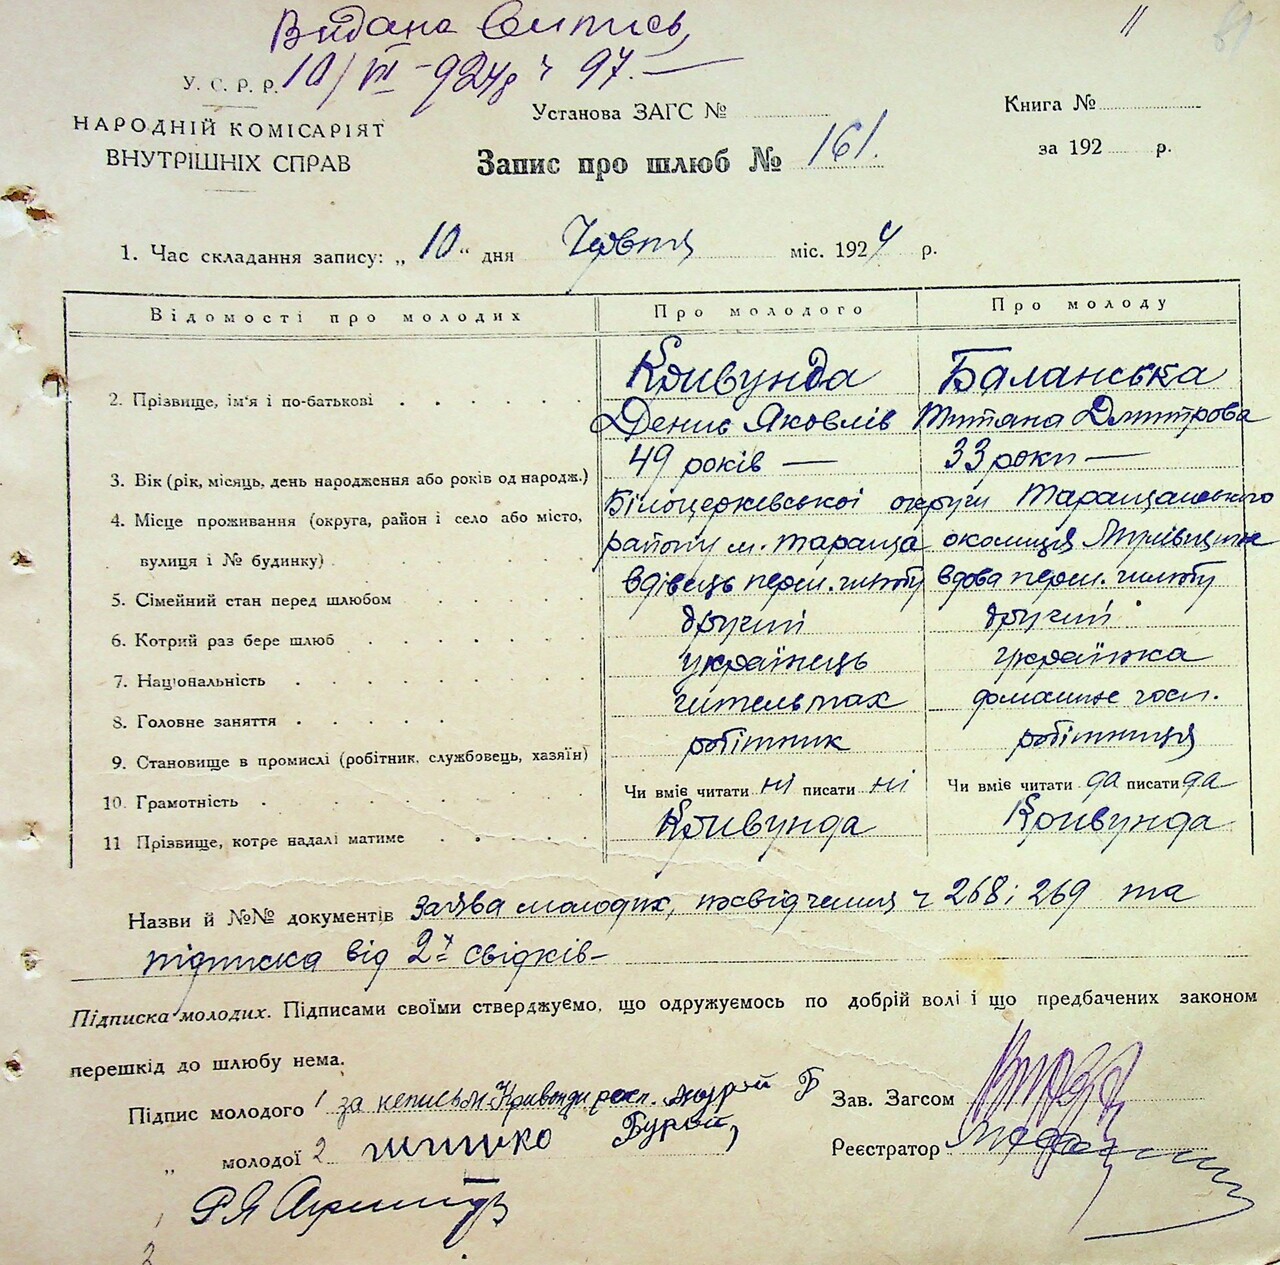 Видана Випись
10/VI-924 р ч 97.—
У. С. Р. Р.
НАРОДНІЙ КОМІСАРІЯТ
ВНУТРІШНІХ СПРАВ
Установа ЗАГС №
Запис про шлюб № 161.
Книга №
за 192 р.
1. Час складання запису: „ 10 “ дня Червня міс. 1924 р.
Відомості про молодих Про молодого Про молоду
2. Прізвище, ім'я і по-батькові Кривунда Баланська
Денис Яковлів Титяна Дмитрова
3. Вік (рік, місяць, день народження або років од народж.) 49 років — 33 роки —
4. Місце проживання (округа, район і село або місто, Білоцерківської округи Таращанського
вулиця і № будинку) району м. Тараща околиця
5. Сімейний стан перед шлюбом вдівець перш. шлюбу вдова перш. шлюбу
6. Котрий раз бере шлюб другий другий
7. Національність українець українка
8. Головне заняття домашнє госп.
9. Становище в промислі (робітник, службовець, хазяїн) робітник робітниця
10. Грамотність Чи вміє читати ні писати ні Чи вміє читати да писати да
11 Прізвище, котре надалі матиме Кривунда Кривунда
Назви й №№ документів Заява молодих, посвідчення ч 268 і 269 та
підписка від 2х свідків—
Підписка молодих. Підписами своїми стверджуємо, що одружуємось по добрій волі і що предбачених законом
перешкід до шлюбу нема.
Підпис молодого 1 за неписьм. Кривунди росп.
„ молодої 2
Зав. Загсом
Реєстратор
2